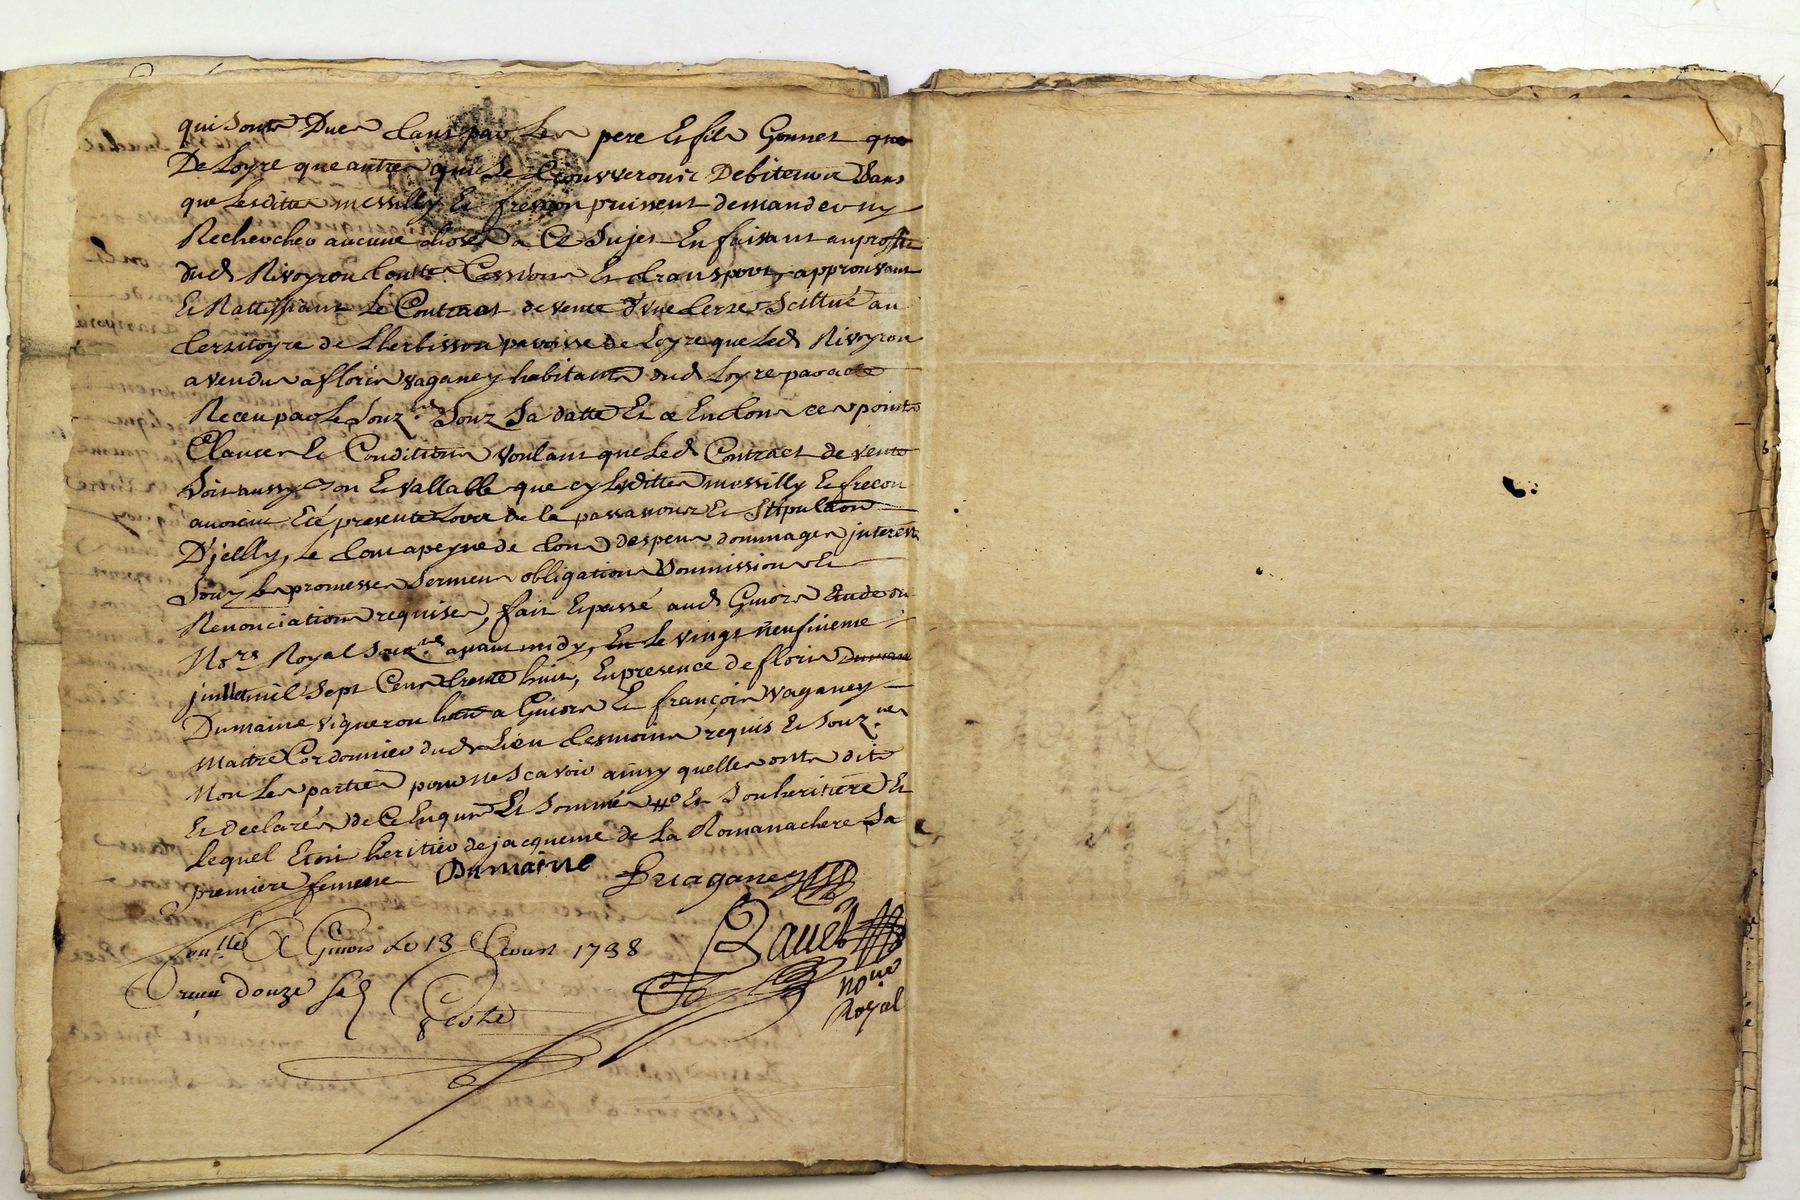 qui sont Dues tant par Les pere Et fils Gonnet que
De Loyre que autres qui Se trouveront Debiteurs Sans
que Lesdittes messilly Et frecon puissent demander ny
Rechercher aucune choses a Ce Sujet En faisant au proffit
dud Rivoyron touttes Cessions Et transport, approuvant
Et Rattiffiant Le Contract de vente d'une terre Scittué au
territoyre de Lherbisson paroisse de Loyre que Led Rivoyron
a vendu a floris vaganey habitant dud Loyre par acte
Receu par Le Souz.né Souz Sa datte Et ce En tous ces points
Clauses Et Conditions voulant que Led Contract de vente
Soit aussy bon Et vallable que cy Lesdittes messilly Et frecon
avoient Eté presente Lors de la passation Et Stipulation
D'jcelly, Le tout a peyne de tous despens dommages jnterests
Souz Les promesses Serment obligations Soumissions Et
Renonciations requises, fait Et passé aud Givors Etude du
No.re Royal Souz.né avant midy, Le vingt neufvieme
juillet mil Sept Cent trente huit, En presence de floris
Dumaine vigneron hab.t a Givors Et françois vaganey
maitre Cordonnier dud Lieu temoins requis Et Souz.nés
Non Les parties pour ne Scavoir ainsy quelles ont dit
Et declarés de Ce Enquis Et Sommés Et Son heritiere Et
Lequel Etoit heritier de jacqueme de La Romanachere Sa
premiere femme Dumaine F vaganey
Conllé A Givors Le 13 Aoust 1738 Ravet
Receu douze Sols No.re
Royal